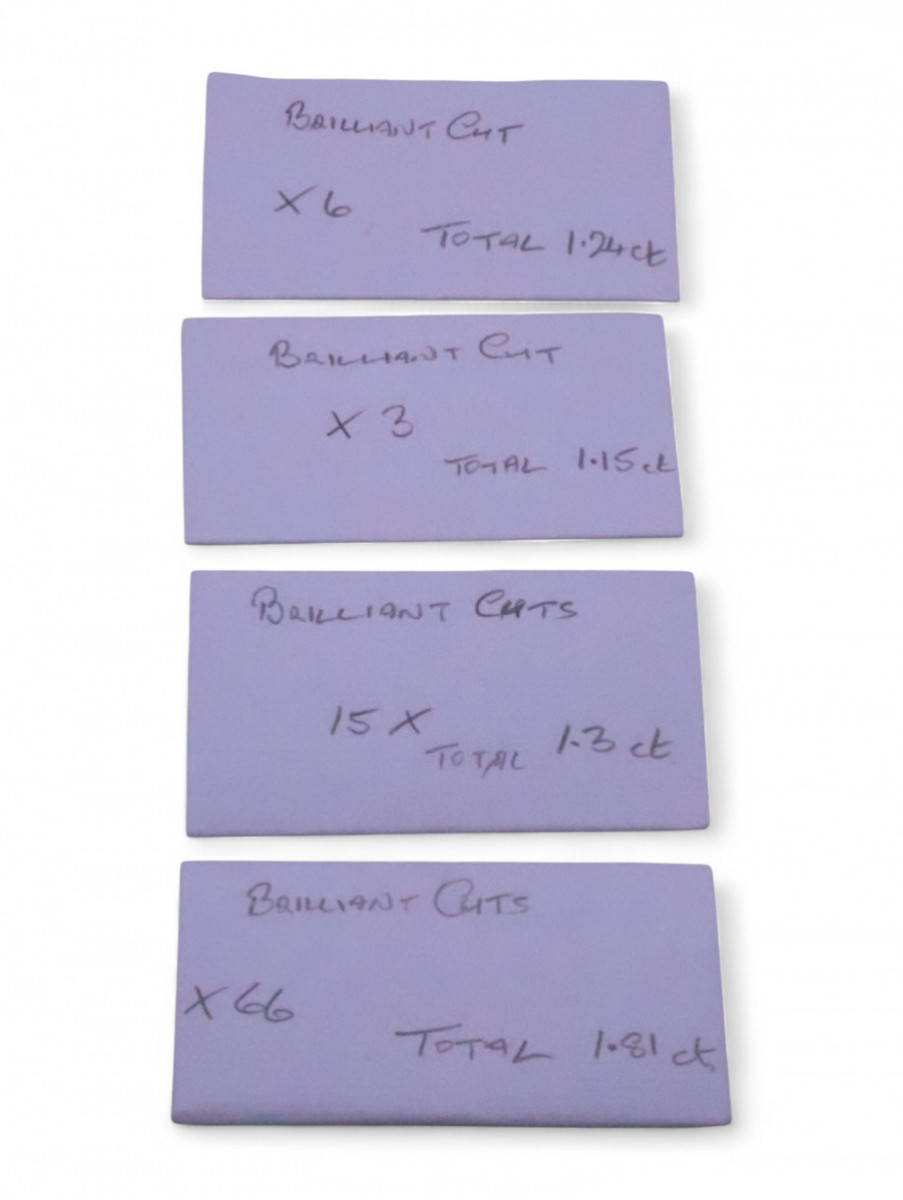 BRILLIANT CUT
X 6
TOTAL 1.24ct
BRILLIANT CUT
X 3
TOTAL 1.15ct
BRILLIANT CUTS
15 X
TOTAL 1.3 ct
BRILLIANT CUTS
X 66
TOTAL 1.81 ct.